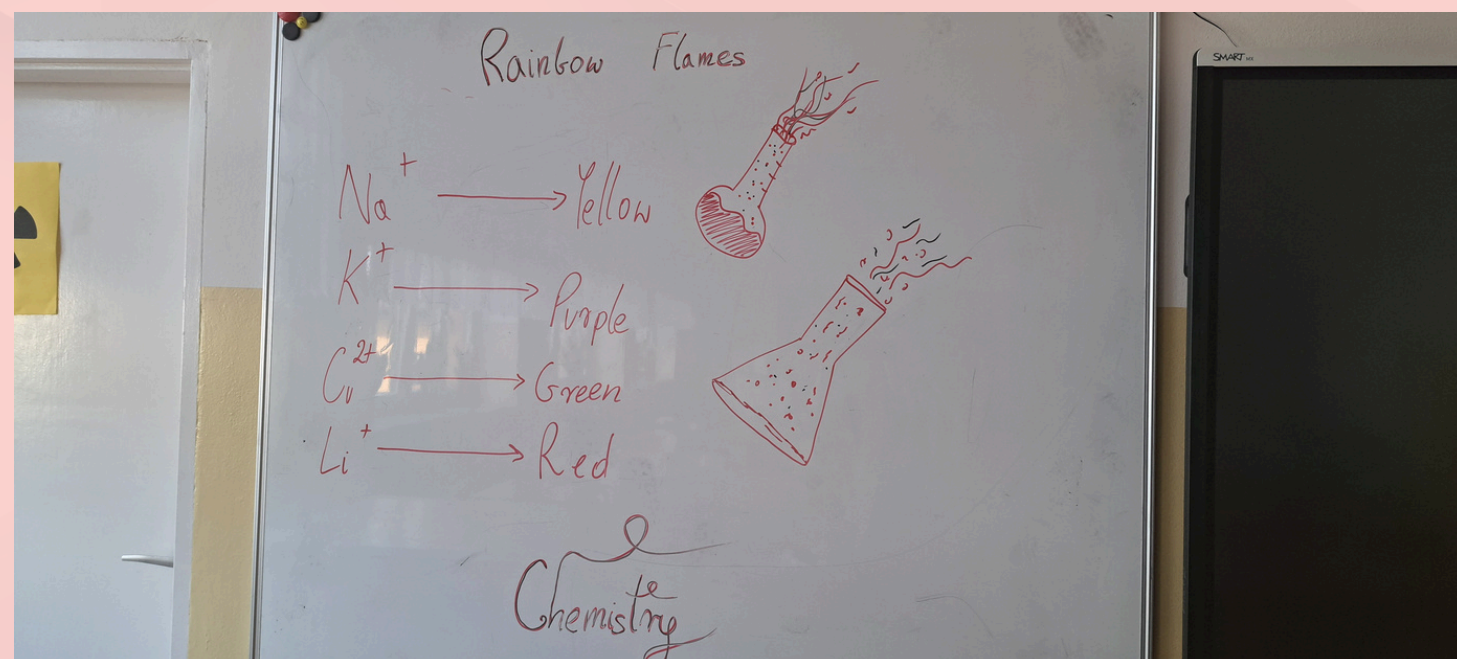 Rainbow Flames
Na⁺ → Yellow
K⁺ → Purple
Cu²⁺ → Green
Li⁺ → Red
Chemistry
SMART